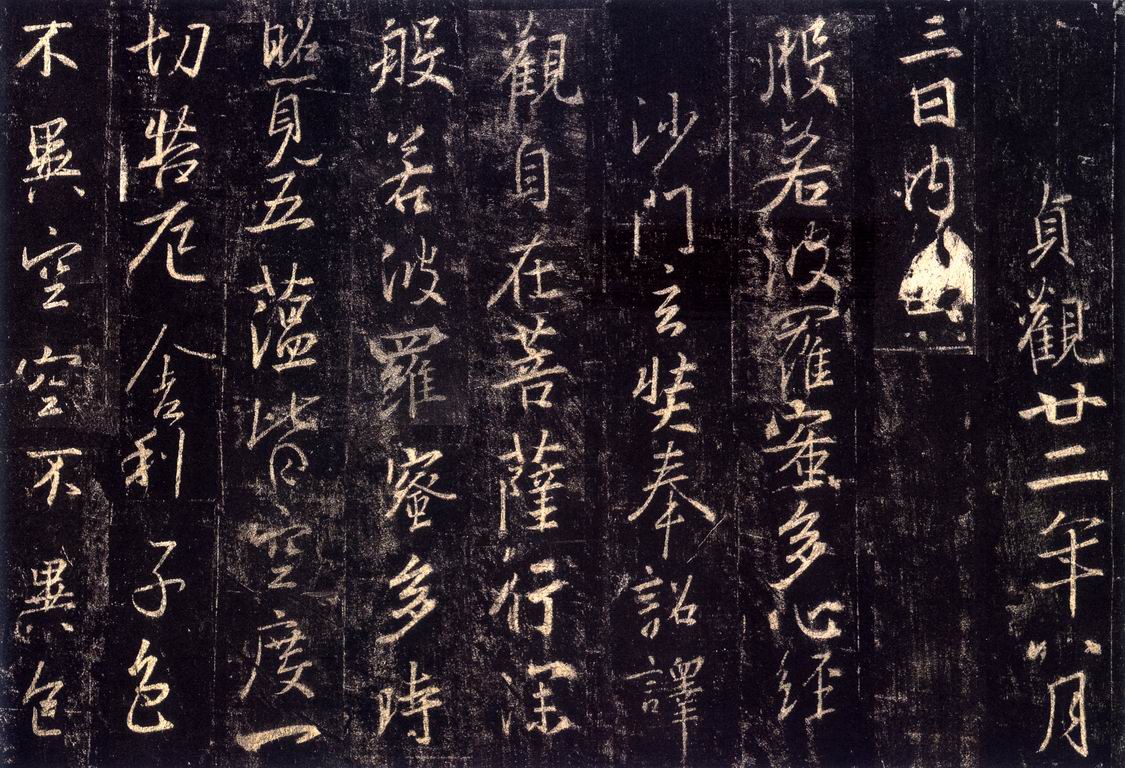 貞觀廿二年八月
三日内
般若波羅蜜多心經
沙門玄奘奉詔譯
觀自在菩薩行深
般若波羅蜜多時
照見五蘊皆空度一
切苦厄舍利子色
不異空空不異色